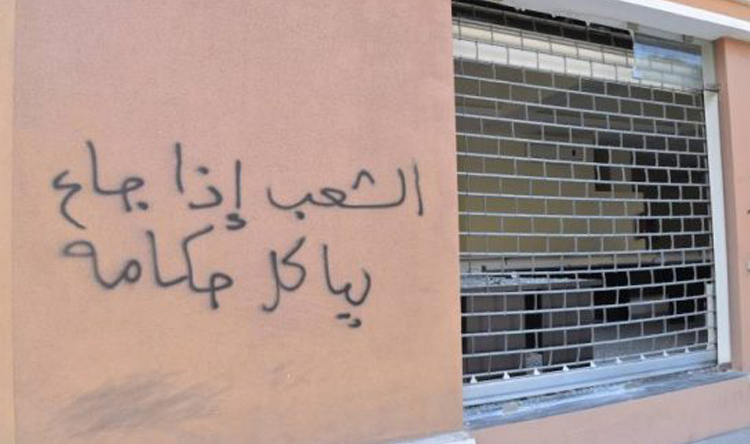 الشعب إذا جاع
ياكل حكامه